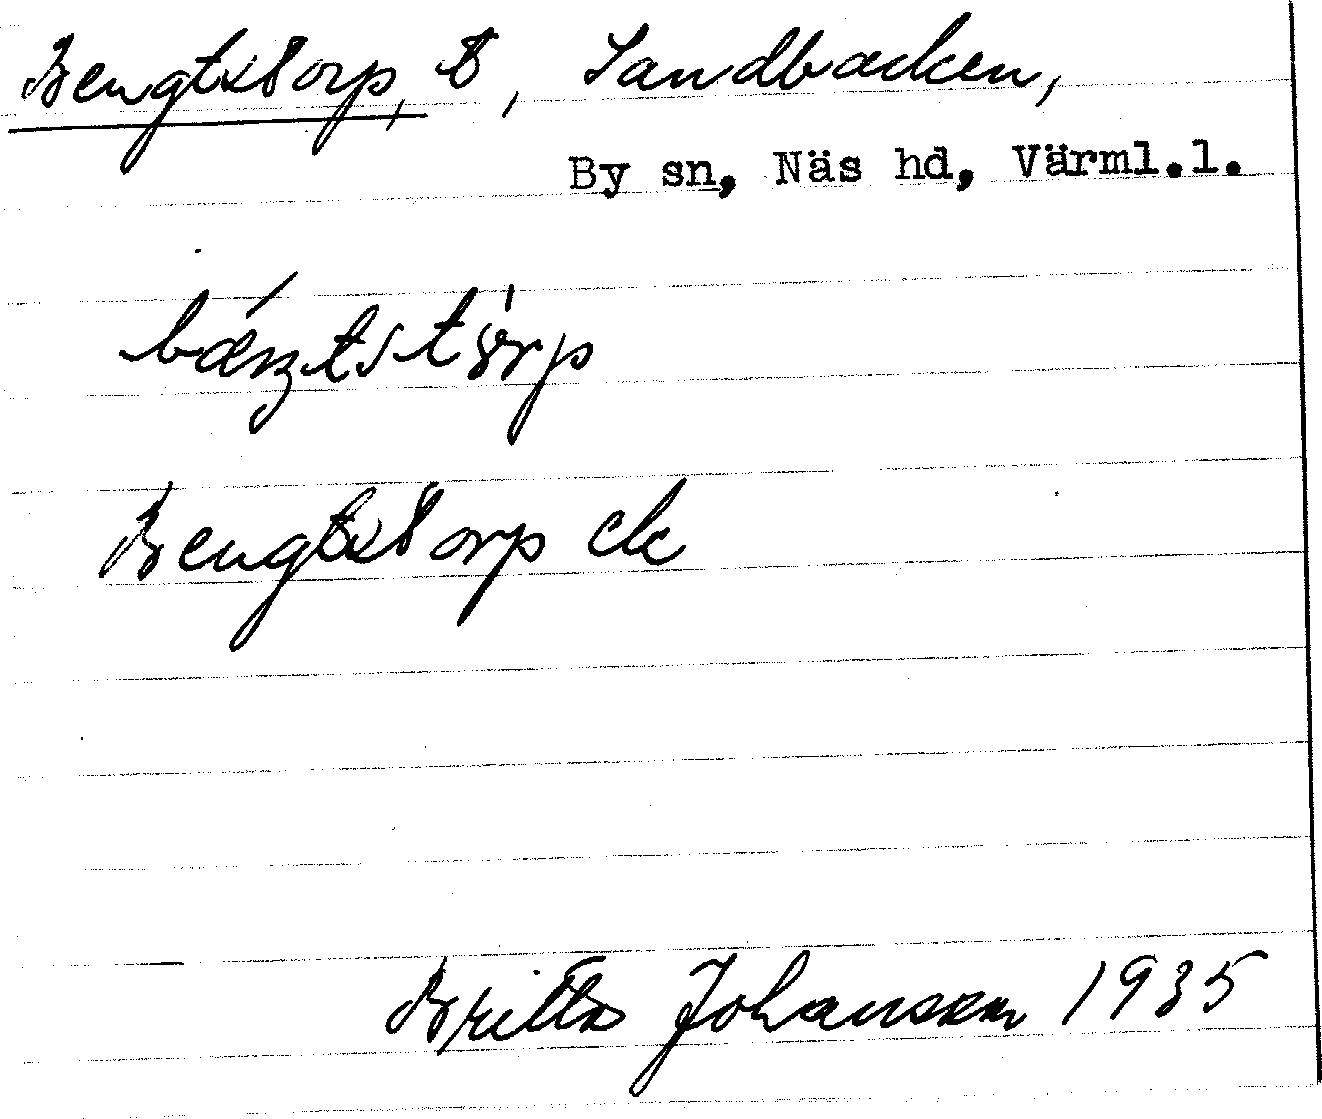 Bengtstorp, t, Sandbacken,
By sn, Näs hd, Värml.l.
Bengtstorp ek
Britta Johansson 1935